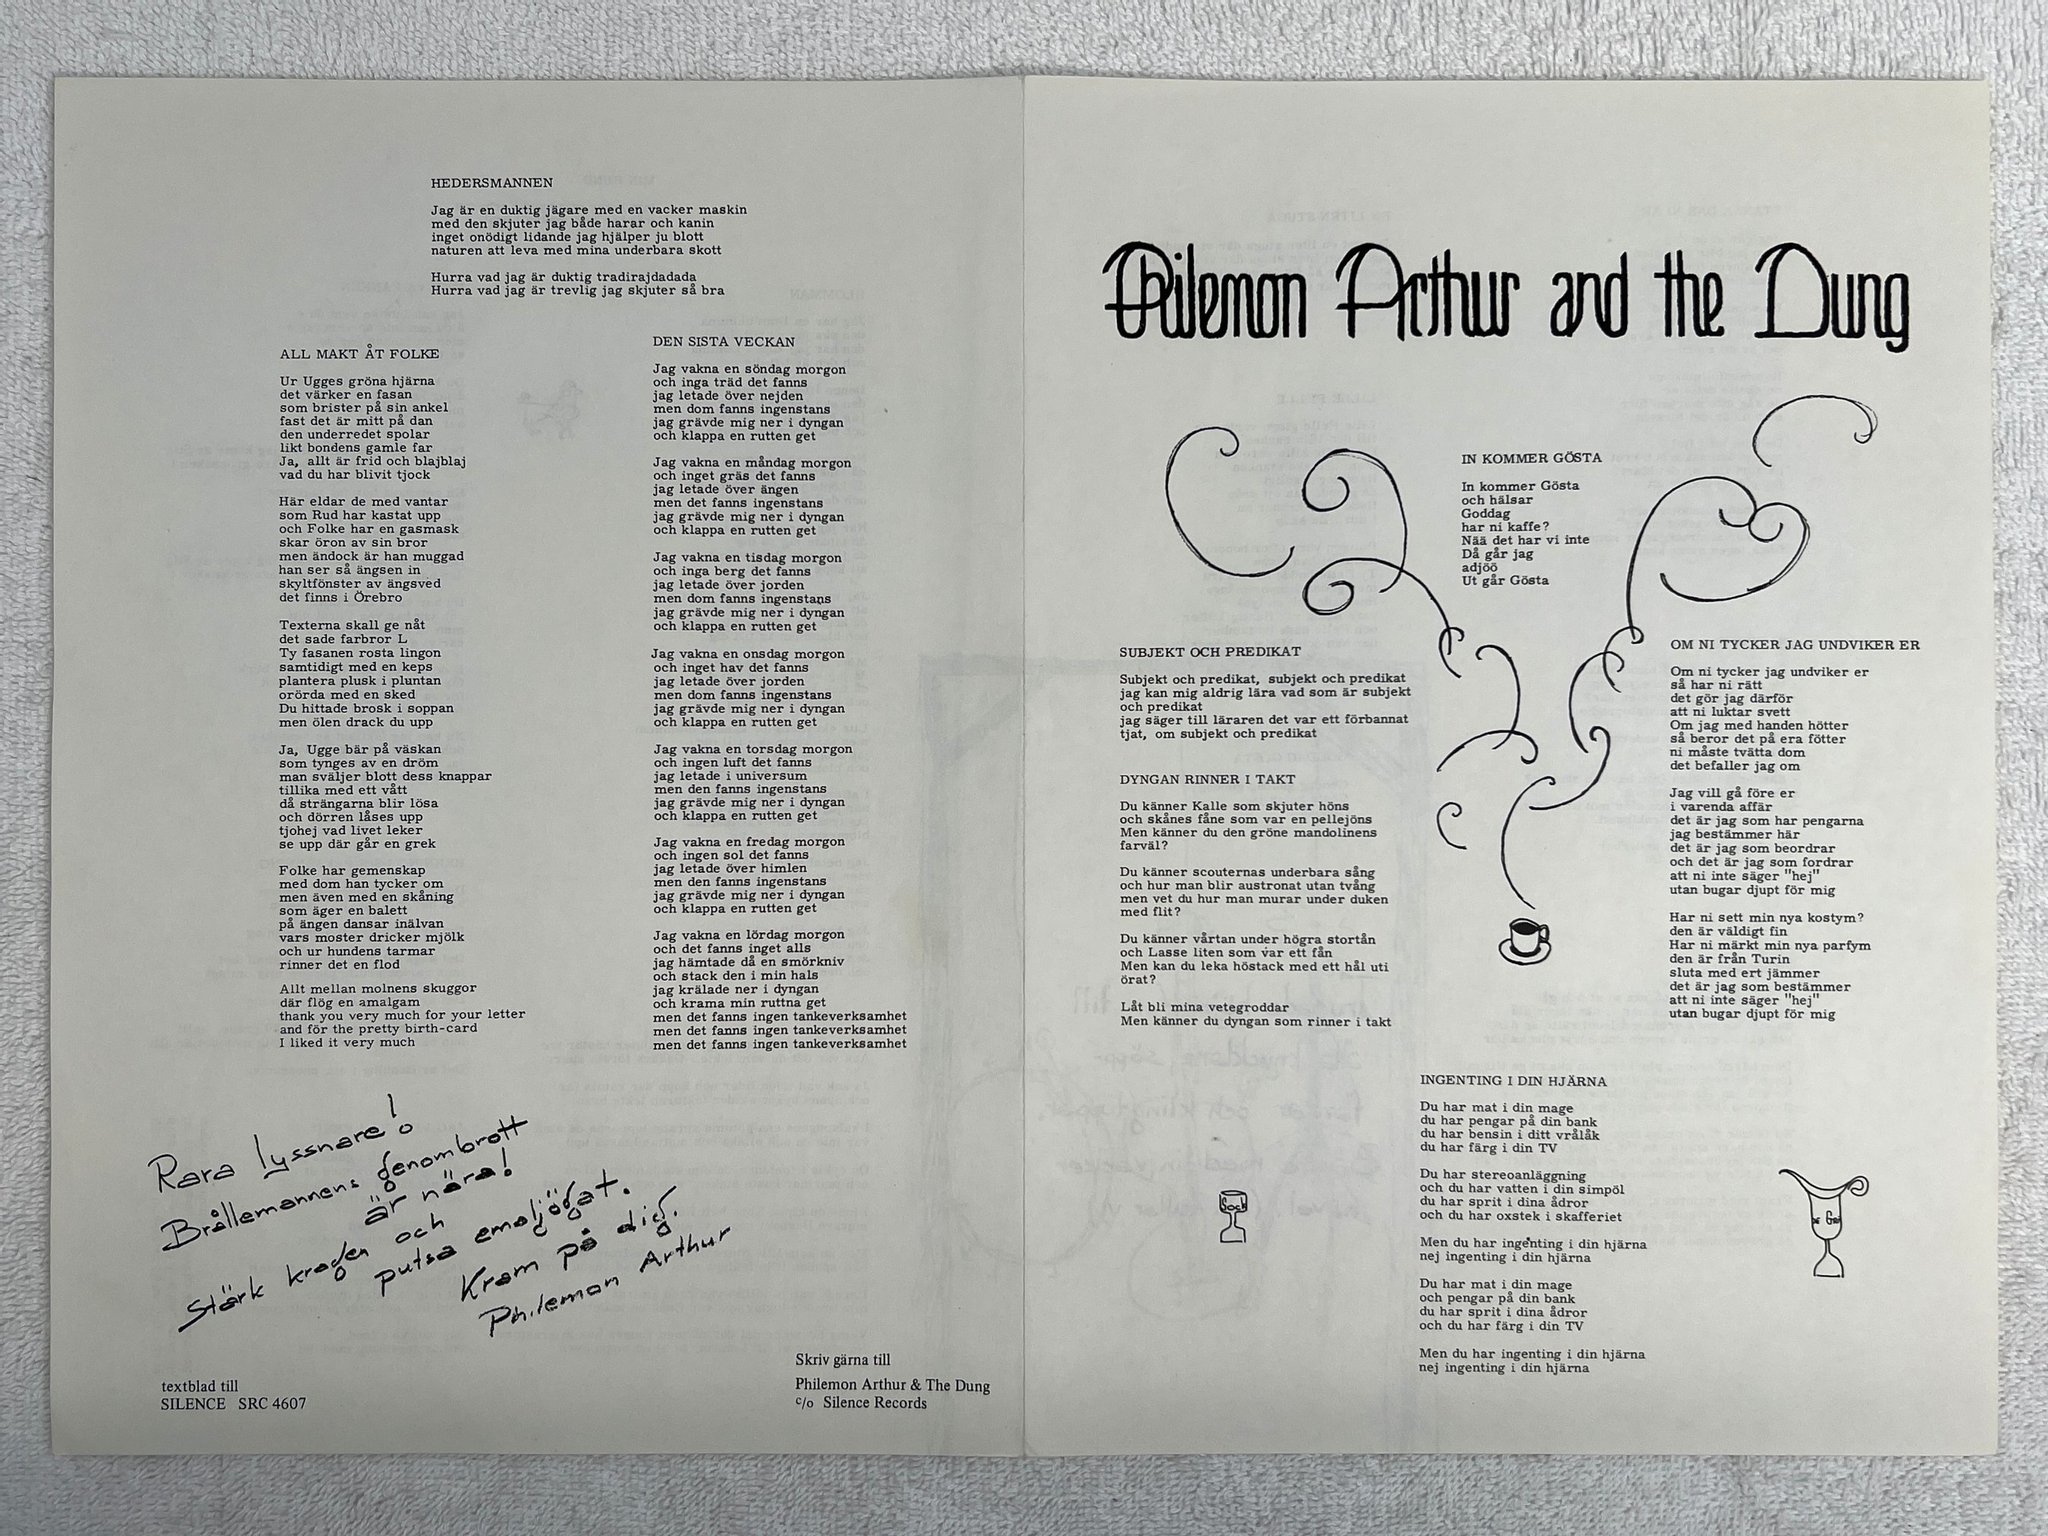 HEDERSMANNEN
Jag är en duktig jägare med en vacker maskin
med den skjuter jag både harar och kanin
inget onödigt lidande jag hjälper ju blott
naturen att leva med mina underbara skott
Hurra vad jag är duktig tradirajdadada
Hurra vad jag är trevlig jag skjuter så bra
ALL MAKT ÅT FOLKE
Ur Ugges gröna hjärna
det värker en fasan
som brister på sin ankel
fast det är mitt på dan
den underredet spolar
likt bondens gamle far
Ja, allt är frid och blajblaj
vad du har blivit tjock
Här eldar de med vantar
som Rud har kastat upp
och Folke har en gasmask
skar öron av sin bror
men ändock är han muggad
han ser så ängsen in
skyltfönster av ängsved
det finns i Örebro
Texterna skall ge nåt
det sade farbror L
Ty fasanen rosta lingon
samtidigt med en keps
plantera plusk i pluntan
orörda med en sked
Du hittade brosk i soppan
men ölen drack du upp
Ja, Ugge bär på väskan
som tynges av en dröm
man sväljer blott dess knappar
tillika med ett vått
då strängarna blir lösa
och dörren låses upp
tjohej vad livet leker
se upp där går en grek
Folke har gemenskap
med dom han tycker om
men även med en skåning
som äger en balett
på ängen dansar inälvan
vars moster dricker mjölk
och ur hundens tarmar
rinner det en flod
Allt mellan molnens skuggor
där flög en amalgam
thank you very much for your letter
and för the pretty birth-card
I liked it very much
DEN SISTA VECKAN
Jag vakna en söndag morgon
och inga träd det fanns
jag letade över nejden
men dom fanns ingenstans
jag grävde mig ner i dyngan
och klappa en rutten get
Jag vakna en måndag morgon
och inget gräs det fanns
jag letade över ängen
men det fanns ingenstans
jag grävde mig ner i dyngan
och klappa en rutten get
Jag vakna en tisdag morgon
och inga berg det fanns
jag letade över jorden
men dom fanns ingenstans
jag grävde mig ner i dyngan
och klappa en rutten get
Jag vakna en onsdag morgon
och inget hav det fanns
jag letade över jorden
men dom fanns ingenstans
jag grävde mig ner i dyngan
och klappa en rutten get
Jag vakna en torsdag morgon
och ingen luft det fanns
jag letade i universum
men den fanns ingenstans
jag grävde mig ner i dyngan
och klappa en rutten get
Jag vakna en fredag morgon
och ingen sol det fanns
jag letade över himlen
men den fanns ingenstans
jag grävde mig ner i dyngan
och klappa en rutten get
Jag vakna en lördag morgon
och det fanns inget alls
jag hämtade då en smörkniv
och stack den i min hals
jag krälade ner i dyngan
och krama min ruttna get
men det fanns ingen tankeverksamhet
men det fanns ingen tankeverksamhet
men det fanns ingen tankeverksamhet
Rara lyssnare!
Brållemannens genombrott
är nära!
Stärk kragen och
putsa emaljögat.
Kram på dig.
Philemon Arthur
textblad till
SILENCE SRC 4607
Skriv gärna till
Philemon Arthur & The Dung
c/o Silence Records
Philemon Arthur and the Dung
IN KOMMER GÖSTA
In kommer Gösta
och hälsar
Goddag
har ni kaffe?
Nää det har vi inte
Då går jag
adjöö
Ut går Gösta
SUBJEKT OCH PREDIKAT
Subjekt och predikat, subjekt och predikat
jag kan mig aldrig lära vad som är subjekt
och predikat
jag säger till läraren det var ett förbannat
tjat, om subjekt och predikat
DYNGAN RINNER I TAKT
Du känner Kalle som skjuter höns
och skånes fåne som var en pellejöns
Men känner du den gröne mandolinens
farväl?
Du känner scouternas underbara sång
och hur man blir austronat utan tvång
men vet du hur man murar under duken
med flit?
Du känner vårtan under högra stortån
och Lasse liten som var ett fån
Men kan du leka höstack med ett hål uti
örat?
Låt bli mina vetegroddar
Men känner du dyngan som rinner i takt
OM NI TYCKER JAG UNDVIKER ER
Om ni tycker jag undviker er
så har ni rätt
det gör jag därför
att ni luktar svett
Om jag med handen hötter
så beror det på era fötter
ni måste tvätta dom
det befaller jag om
Jag vill gå före er
i varenda affär
det är jag som har pengarna
jag bestämmer här
det är jag som beordrar
och det är jag som fordrar
att ni inte säger "hej"
utan bugar djupt för mig
Har ni sett min nya kostym?
den är väldigt fin
Har ni märkt min nya parfym
den är från Turin
sluta med ert jämmer
det är jag som bestämmer
att ni inte säger "hej"
utan bugar djupt för mig
INGENTING I DIN HJÄRNA
Du har mat i din mage
du har pengar på din bank
du har bensin i ditt vrålåk
du har färg i din TV
Du har stereoanläggning
och du har vatten i din simpöl
du har sprit i dina ådror
och du har oxstek i skafferiet
Men du har ingenting i din hjärna
nej ingenting i din hjärna
Du har mat i din mage
och pengar på din bank
du har sprit i dina ådror
och du har färg i din TV
Men du har ingenting i din hjärna
nej ingenting i din hjärna